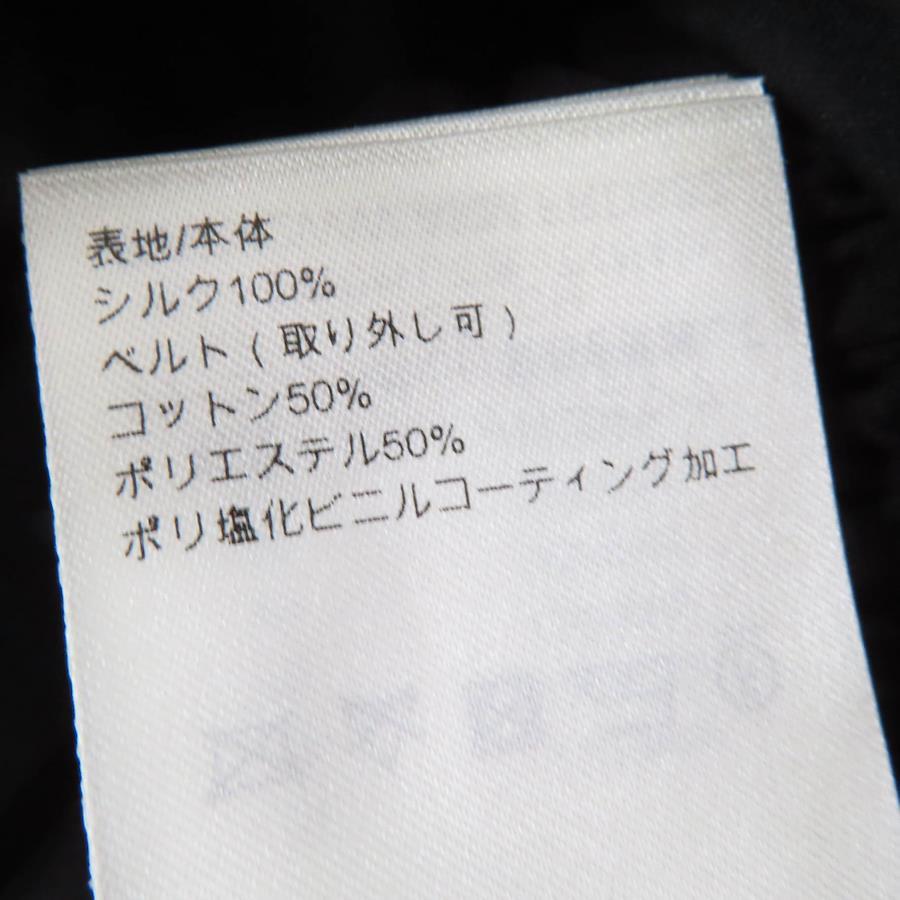 表地/本体
シルク100%
ベルト(取り外し可)
コットン50%
ポリエステル50%
ポリ塩化ビニルコーティング加工